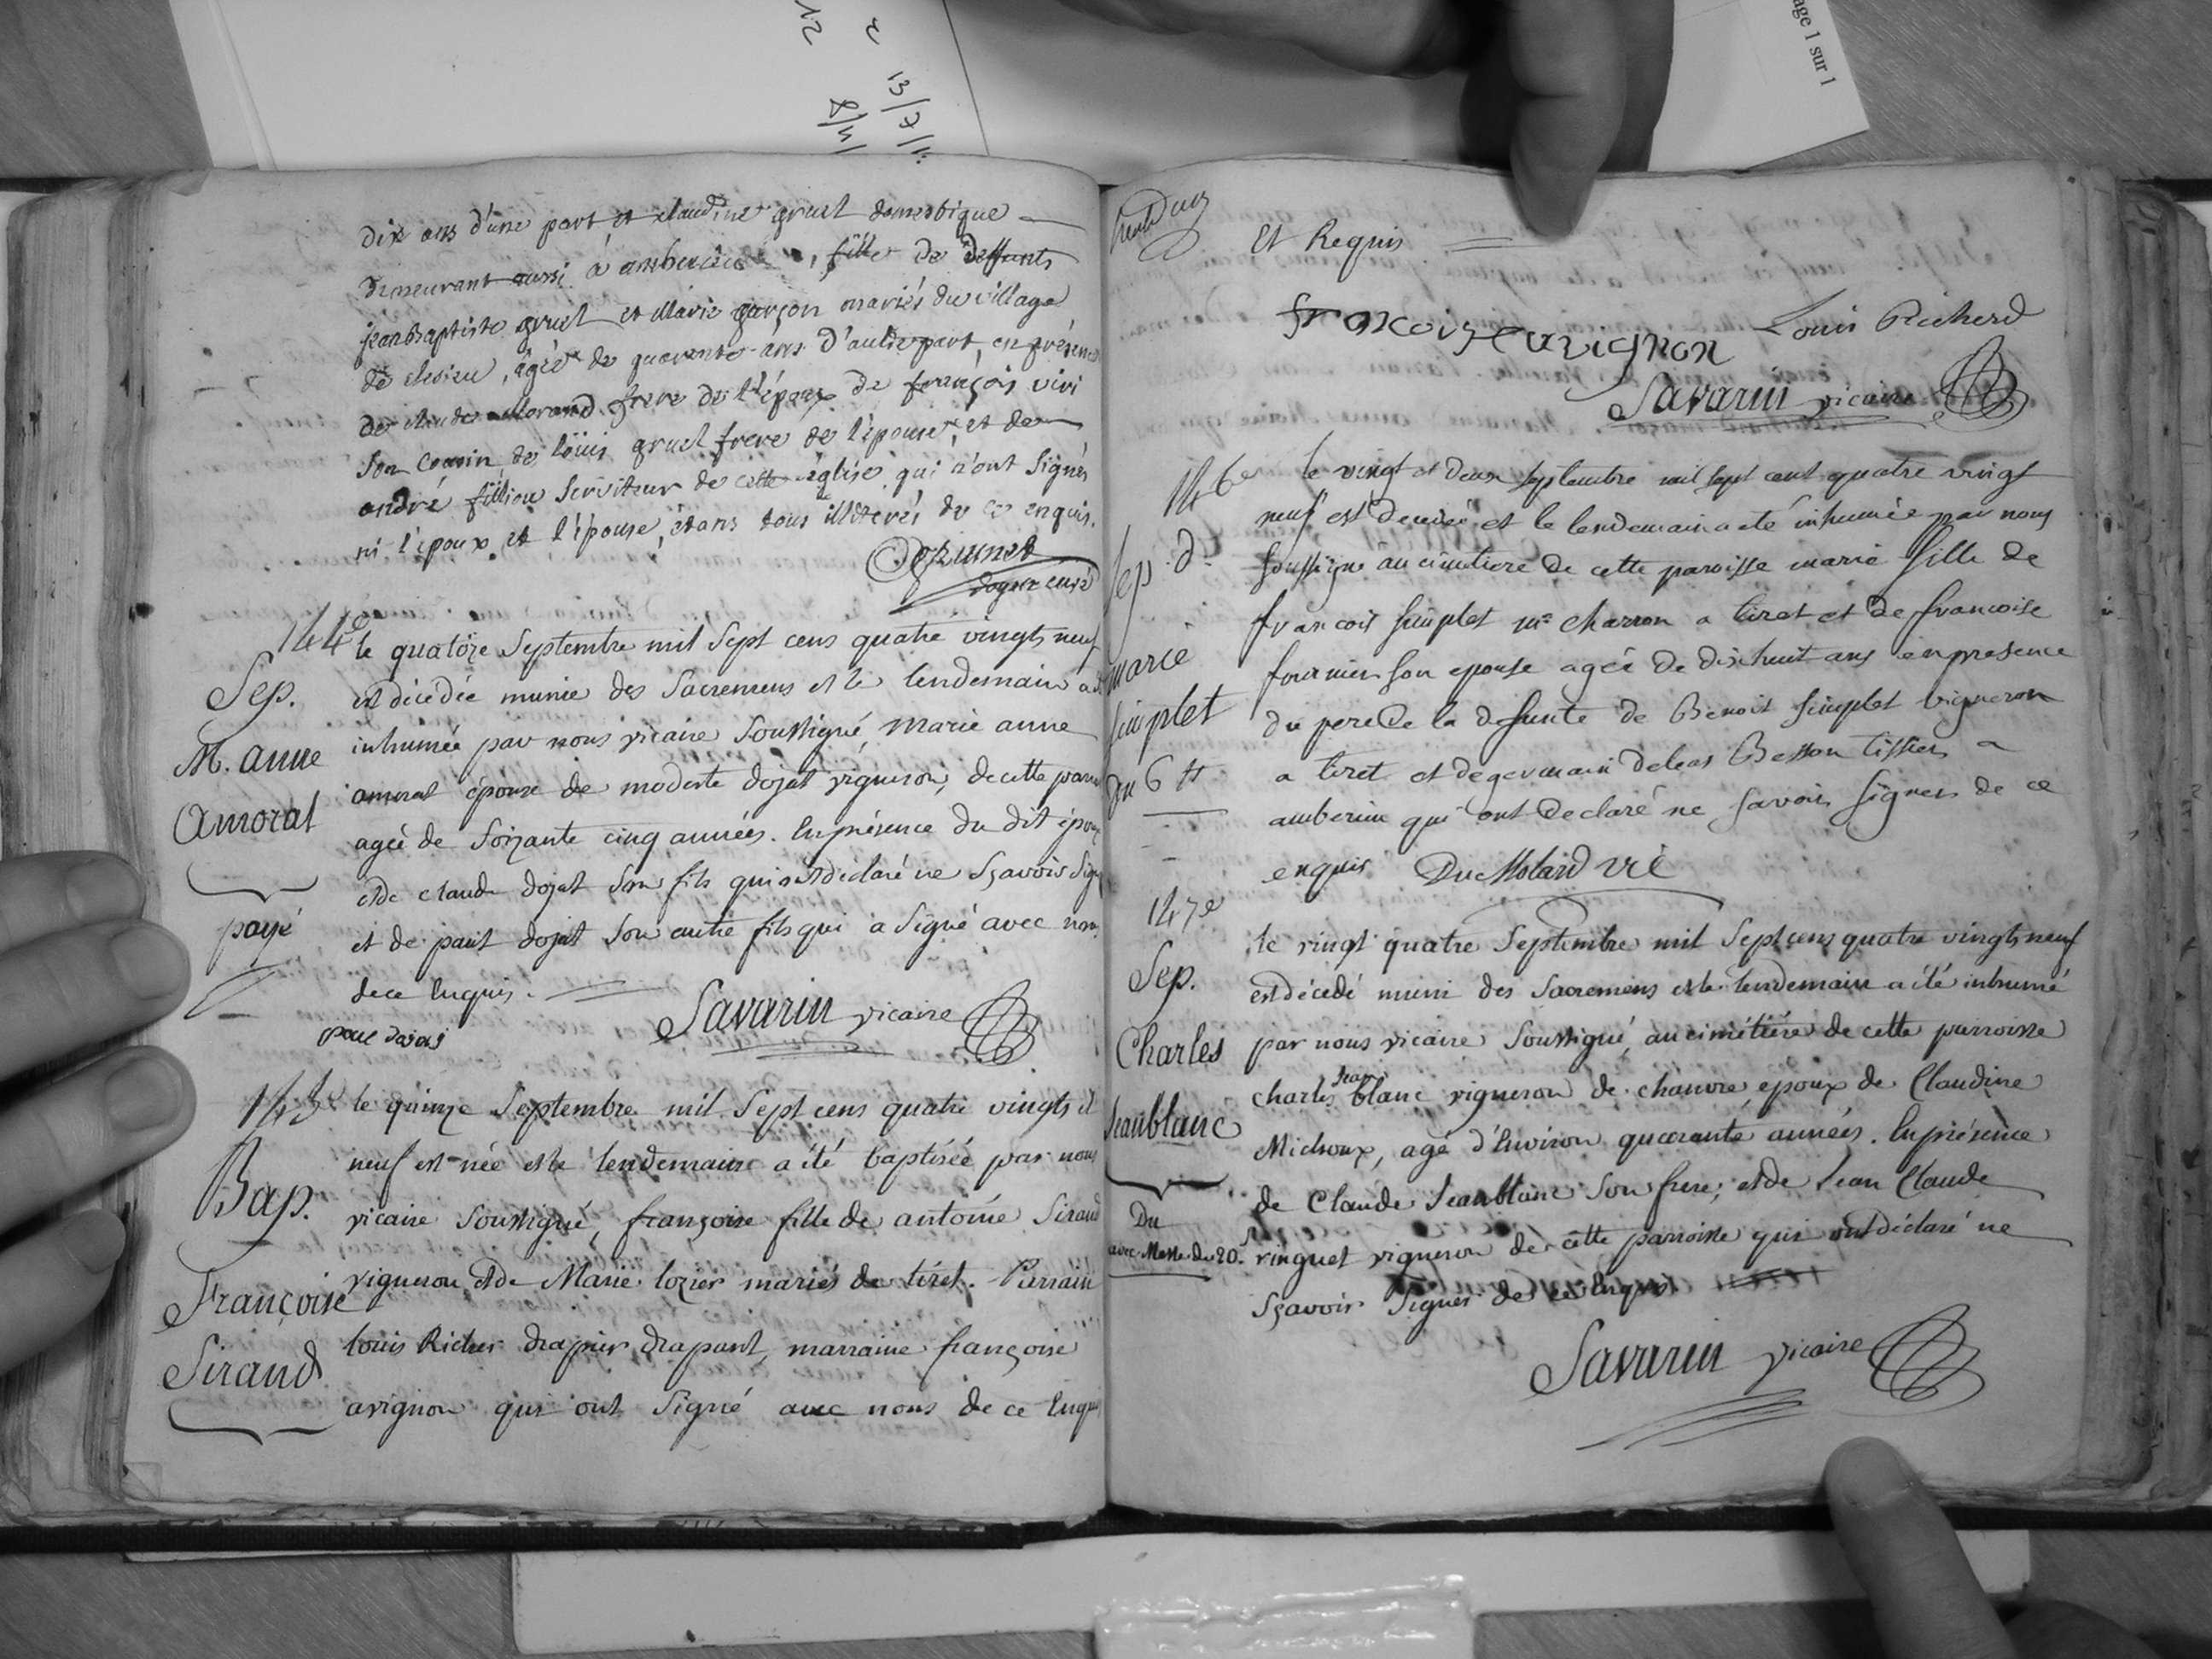 age 1 sur 1
12
2
13/7/1
8/4/
dix ans d'une part, et claudine gruel domestique
demeurant aussi à , fille de deffunts
jean Baptiste gruel et Marie garçon mariés du village
de chesieu, âgée de quarante ans d'autre part, en présence
de claude Morand frere de l'époux de françois vivi
son cousin, de loüis gruel frere de l'épouse, et de
andré filliou serviteur de cette église, qui n'ont signés
ni l'époux et l'épouse, étans tous illiterés de ce enquis.
Brunet
doyen curé
144e
Sep.
M. anne
Amorat
payé
le quatorze Septembre mil Sept cens quatre vingts neuf
est décédée munie des Sacremens et le lendemain a été
inhumée par nous vicaire Soussigné, marie anne
amorat épouse de modeste dojat vigneron, de cette paroi
agée de Soixante cinq années. En présence du dit époux
et de claude dojat son fils qui ont déclaré ne Sçavoir Sign
et de paul dojat Son autre fils qui a Signé avec nous
de ce Enquis.
paul dojat
Savarin vicaire
145e
Bap.
Françoise
Sirand
le quinze Septembre mil Sept cens quatre vingts et
neuf est née et le lendemain a été baptisée par nous
vicaire Soussigné, françoise fille de antoine Sirand
vigneron et de Marie lozier mariés de tiret. Parrain
louis Richer drapier drapant, marraine françoise
avignon qui ont Signé avec nous de ce Enquis
Et Requis
francoise avignon
Louis Richerd
Savarin vicaire
146e
Sep. de
marie
simplet
Du 6 tt
le vingt et deux septembre mil sept cent quatre vingt
neuf est décédée et le lendemain a été inhumée par nous
soussigné au cimetiere de cette paroisse marie fille de
francois simplet me charron a tiret et de francoise
fournier son epouse agée de dixhuit ans en presence
du pere de la defunte de Benoit simplet vigneron
a tiret et de germain Besson tissier a
amberieu qui ont declaré ne savoir signer de ce
enquis DuMolard vic
147e
Sep.
Charles
Jeanblanc
Du
avec Messe du 20.s
le vingt quatre Septembre mil Sept cens quatre vingts neuf
est décédé muni des Sacremens et le lendemain a été inhumé
par nous vicaire Soussigné, au cimétiére de cette parroisse
charles Jean blanc vigneron de chauvre, epoux de Claudine
Michoux, agé d'Environ quarante années. En présence
de Claude Jeanblanc Son frere, et de Jean Claude
vinguet vigneron de cette parroisse qui ont déclaré ne
Sçavoir Signer de ce Enquis.
Savarin vicaire